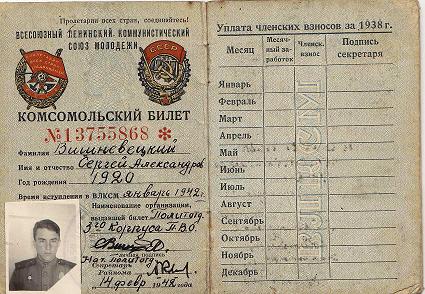 Пролетарии всех стран, соединяйтесь!
ВСЕСОЮЗНЫЙ ЛЕНИНСКИЙ КОММУНИСТИЧЕСКИЙ
СОЮЗ МОЛОДЕЖИ
СССР
КОМСОМОЛЬСКИЙ БИЛЕТ
№13755868 *
Фамилия Вишневецкий
Имя и отчество Сергей Александров
Год рождения 1920
Время вступления в ВЛКСМ январь 1942 г.
Наименование организации,
выдавшей билет Политотд.
3го Корпуса П.В.О.
личная подпись
Нач. Политотд
Секретарь
Райкома
14 февр
Уплата членских взносов за 1938 г.
Месяц
Месяч-
ный за-
работок
Членск.
взнос
Подпись
секретаря
Январь
Февраль
Март
Апрель
Май
Июнь
Июль
Август
Сентябрь
Октябрь
Ноябрь
Декабрь